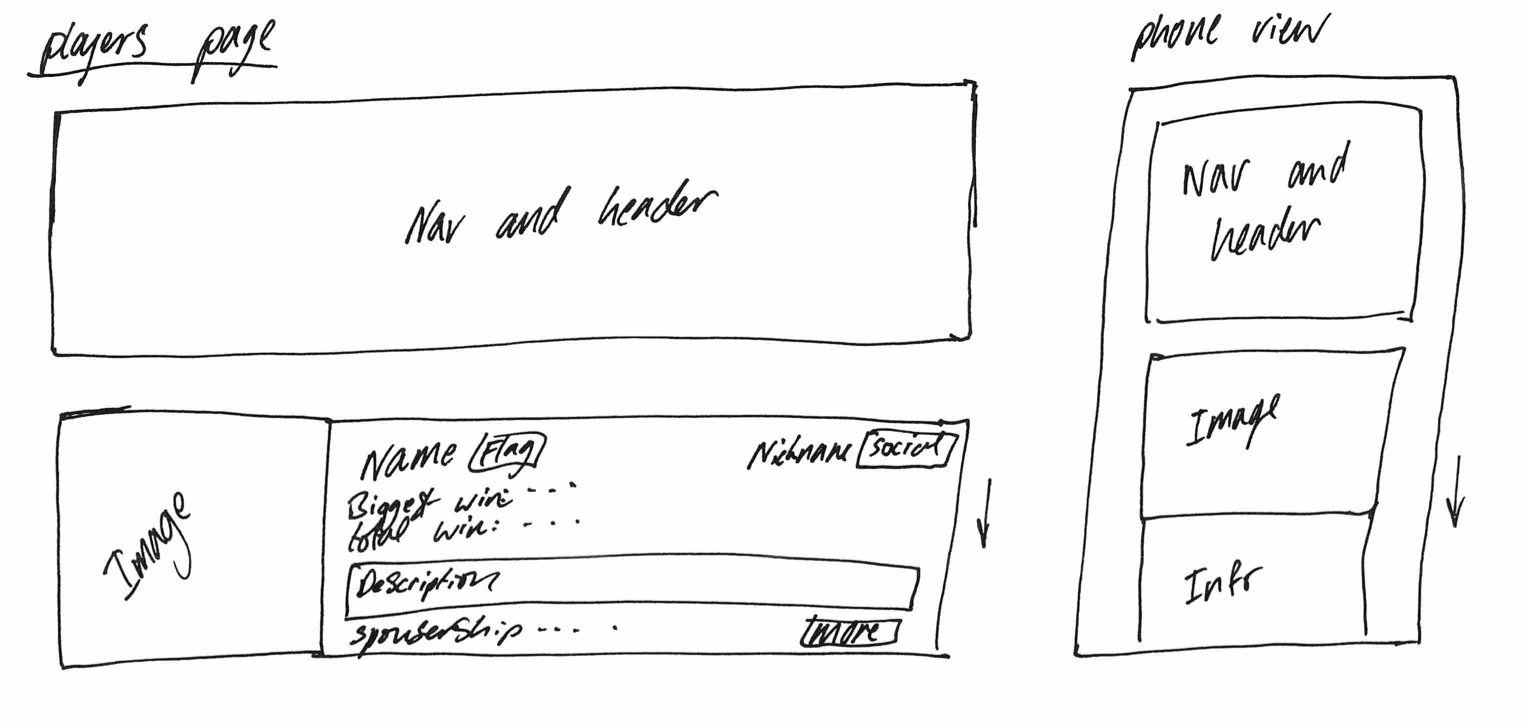 players page
Nav and header
Image
Name Flag
Nickname social
Biggest win: - - -
total win: - - -
Description
sponsership - - - -
more
phone view
Nav and
header
Image
Info